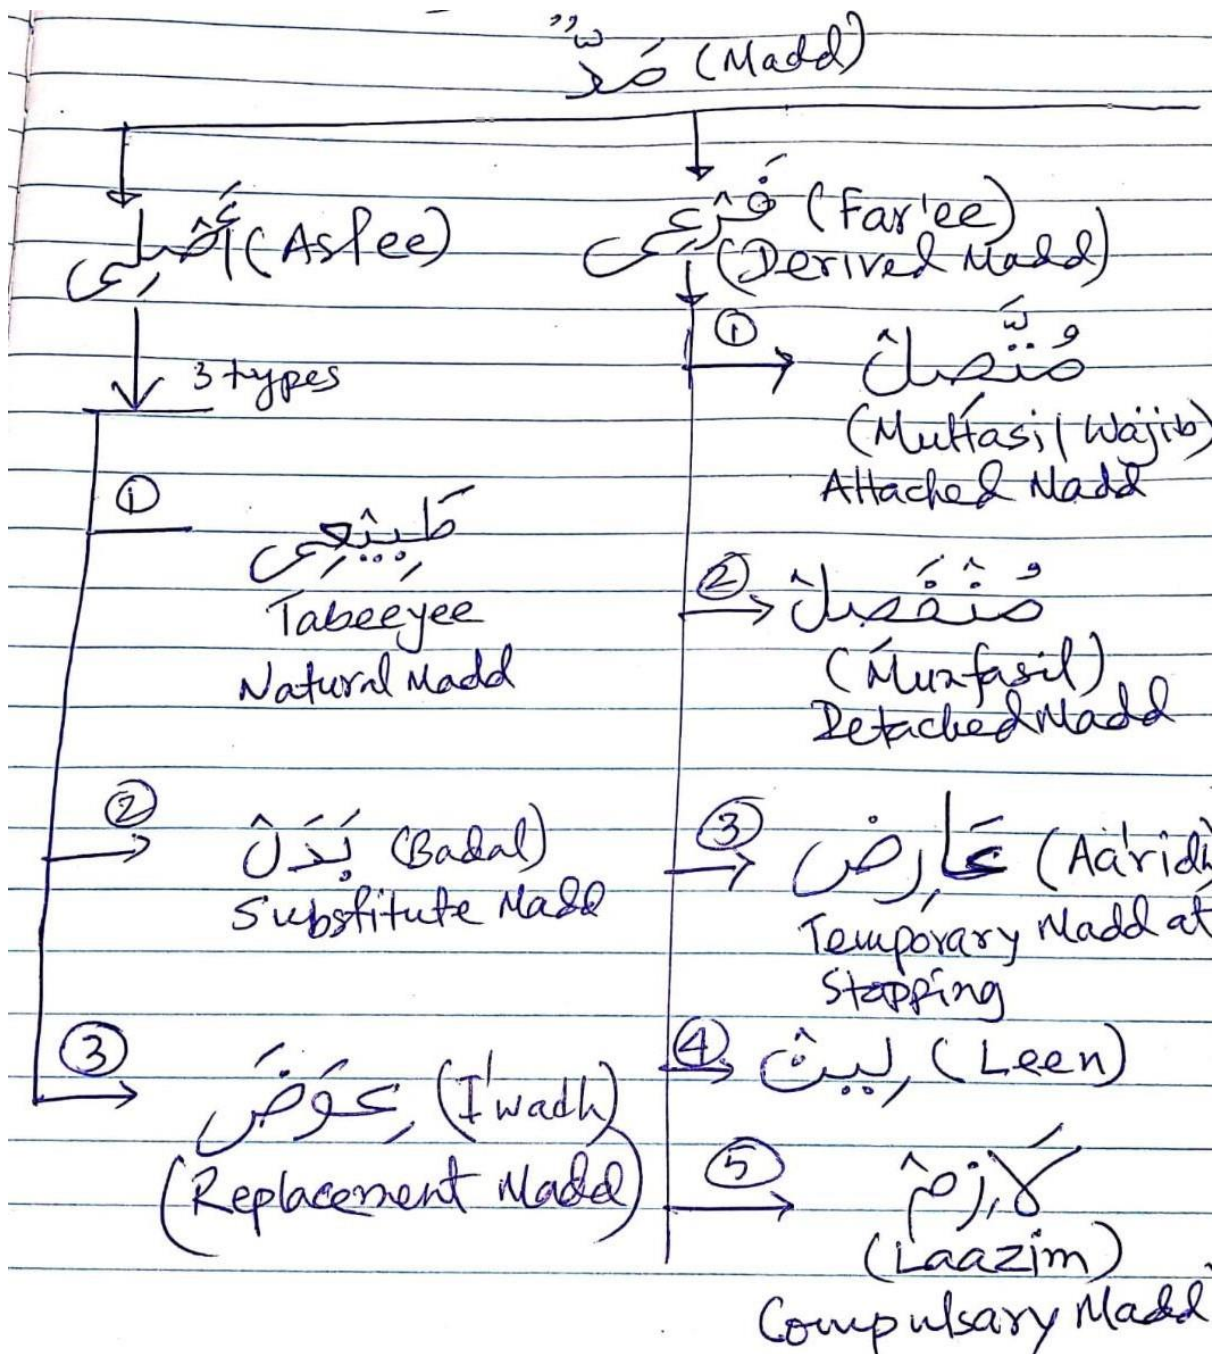 مَدٌّ (Madd)
أَصْلِى (Aslee)
3 types
①
طَبِيْعِى
Tabeeyee
Natural Madd
②
بَدَلْ (Badal)
Substitute Madd
③
عِوَضَ (I'wadh)
(Replacement Madd)
فَرْعِى (Far'ee)
(Derived Madd)
①
مُتَّصِلْ
(Muttasil Wajib)
Attached Madd
②
مُنْفَصِلْ
(Munfasil)
Detached Madd
③
عَارِضْ (Aa'ridh)
Temporary Madd at
Stopping
④
لِينْ (Leen)
⑤
لَازِمْ
(Laazim)
Compulsary Madd